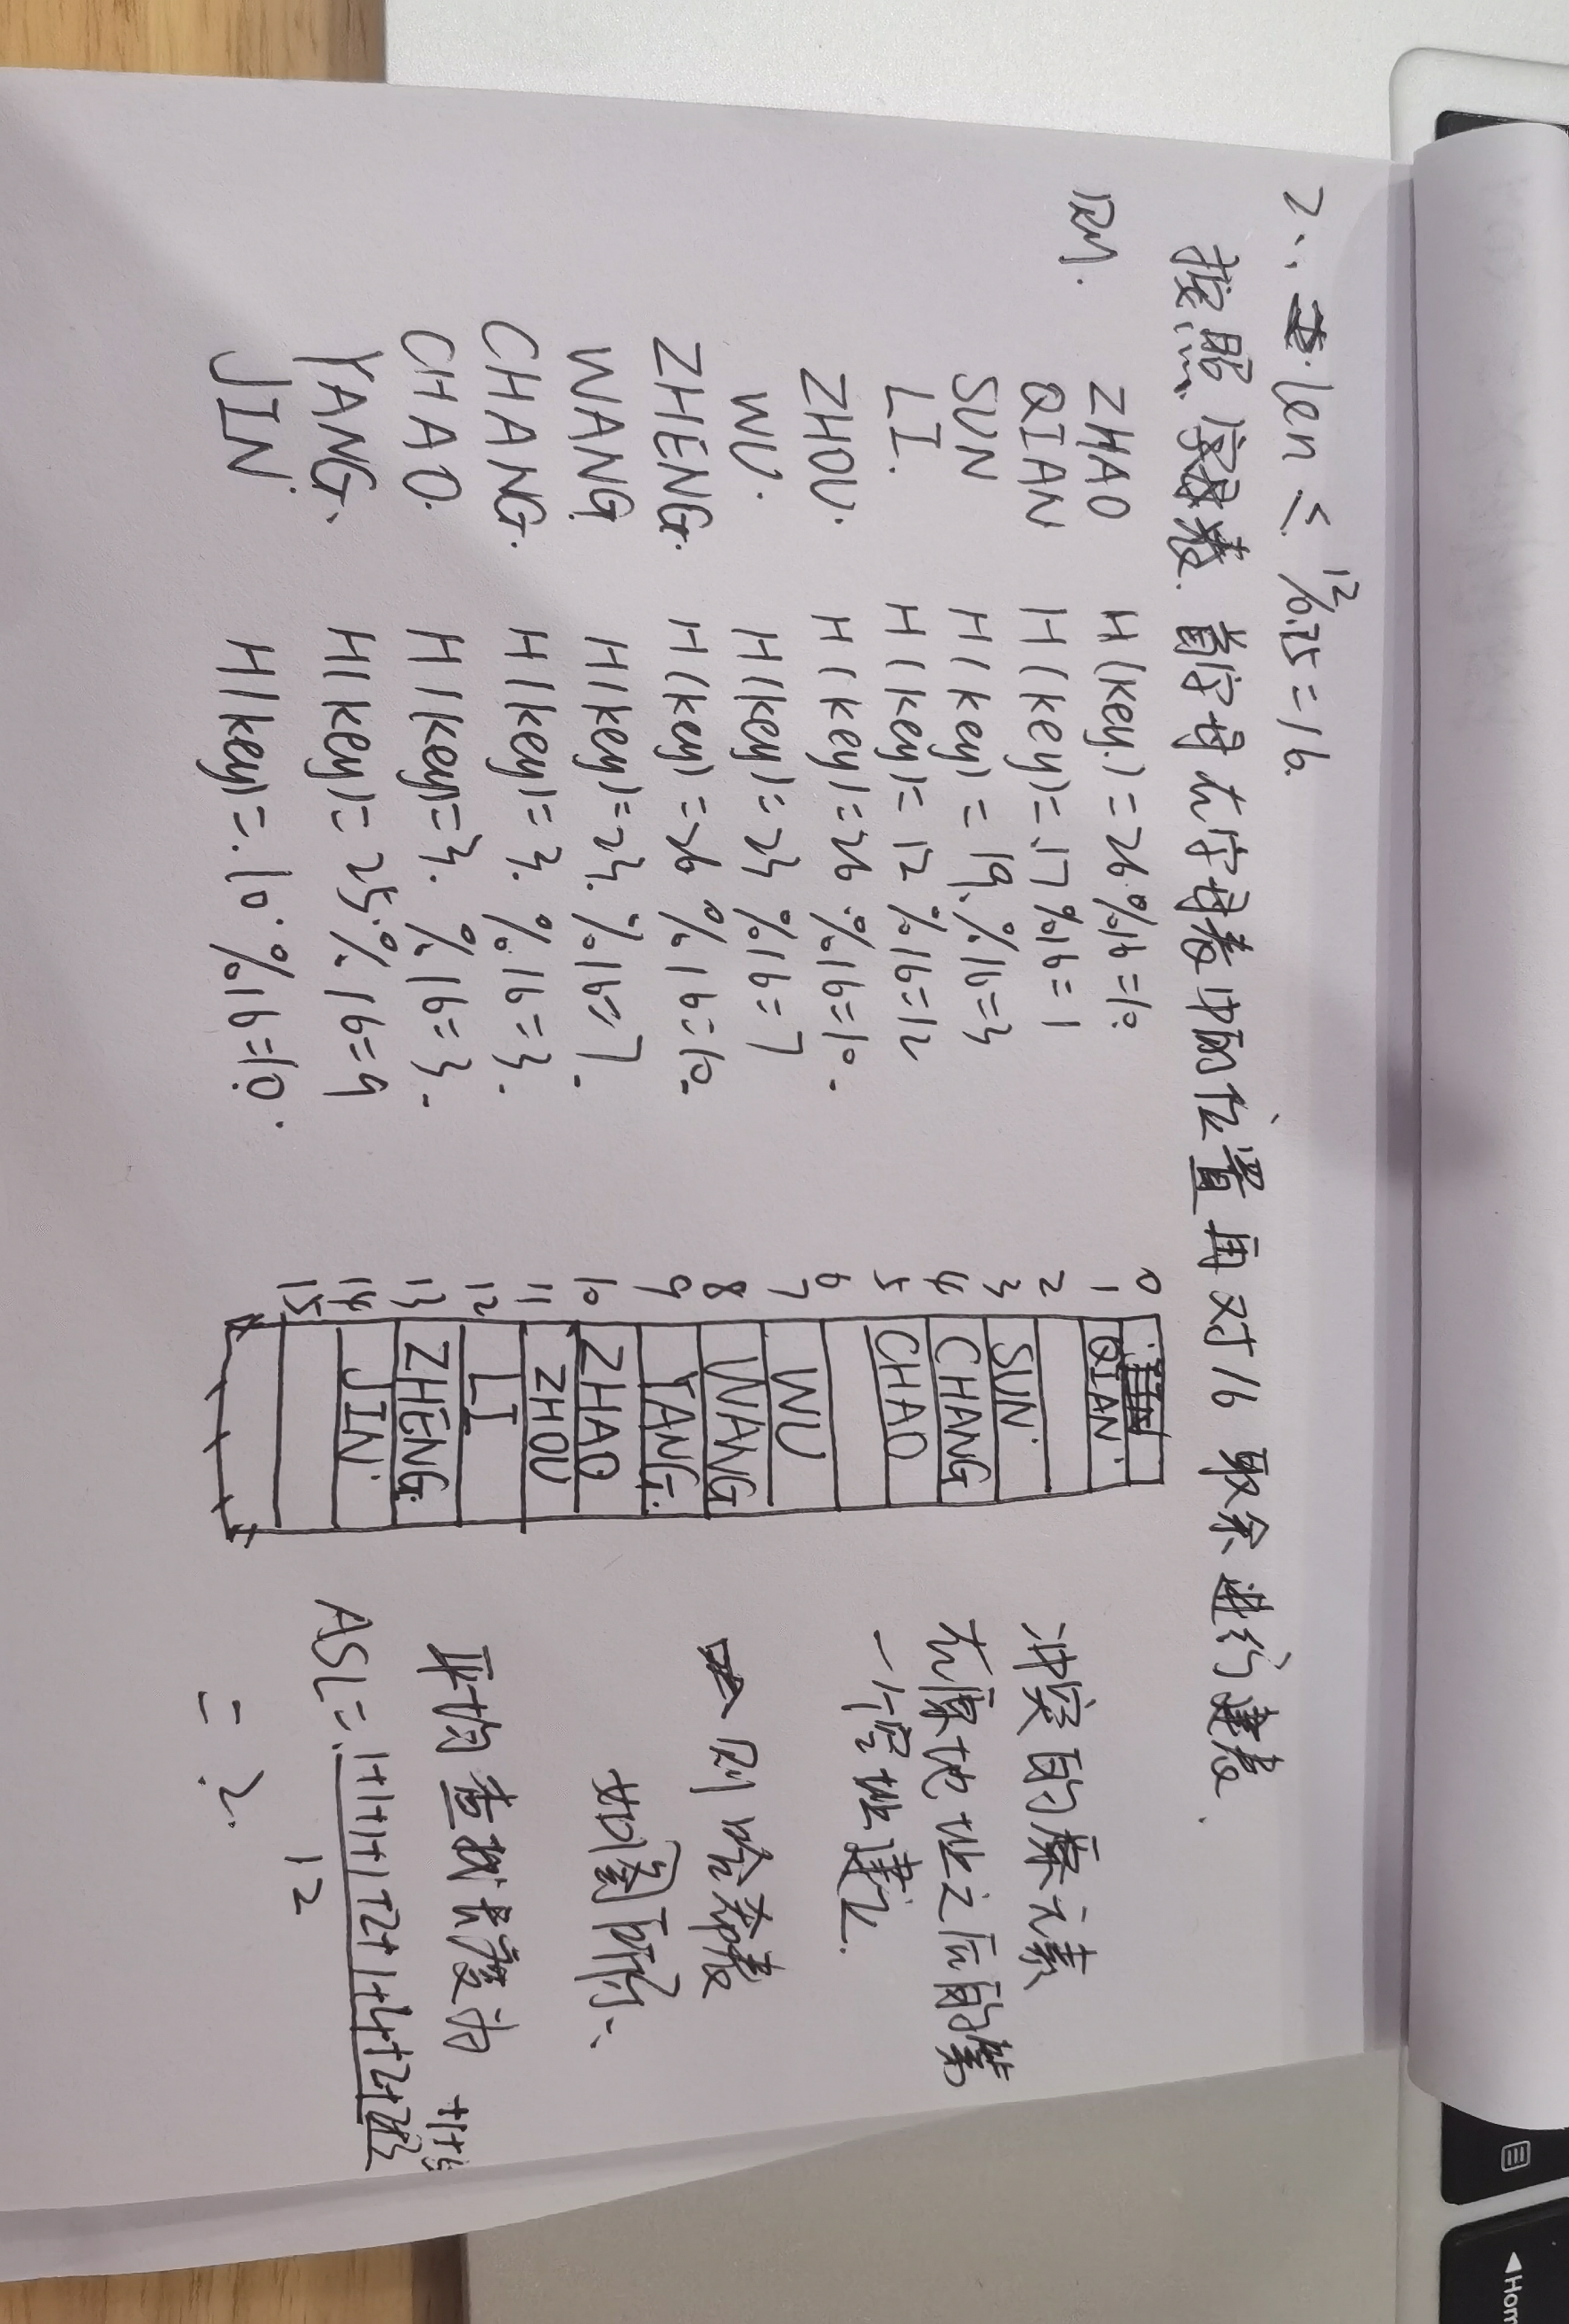 2. len ≤ 12/0.75=16.
按照 首字母在字母表中的位置再对16取余进行建表.
则. ZHAO H(key)=26%16=10
QIAN H(key)=17%16=1
SUN H(key)=19%16=3
LI. H(key)=12%16=12
ZHOU. H(key)=26%16=10.
WU. H(key)=23%16=7
ZHENG. H(key)=26%16=10.
WANG H(key)=23.%16=7.
CHANG. H(key)=3.%16=3.
CHAO. H(key)=3.%16=3.
YANG. H(key)=25.%16=9
JIN. H(key)=.10.%16=10.
0
1 QIAN.
2
3 SUN.
4 CHANG
5 CHAO
6
7 WU
8 WANG
9 YANG.
10 ZHAO
11 ZHOU
12 LI
13 ZHENG.
14 JIN.
15
冲突的元素
在原地址之后的第
一个空址建立.
则哈希表
如图所示、
平均查找长度为
ASL=.1+1+1+1+2+1+4+2+2+3+1+5
12
=2.